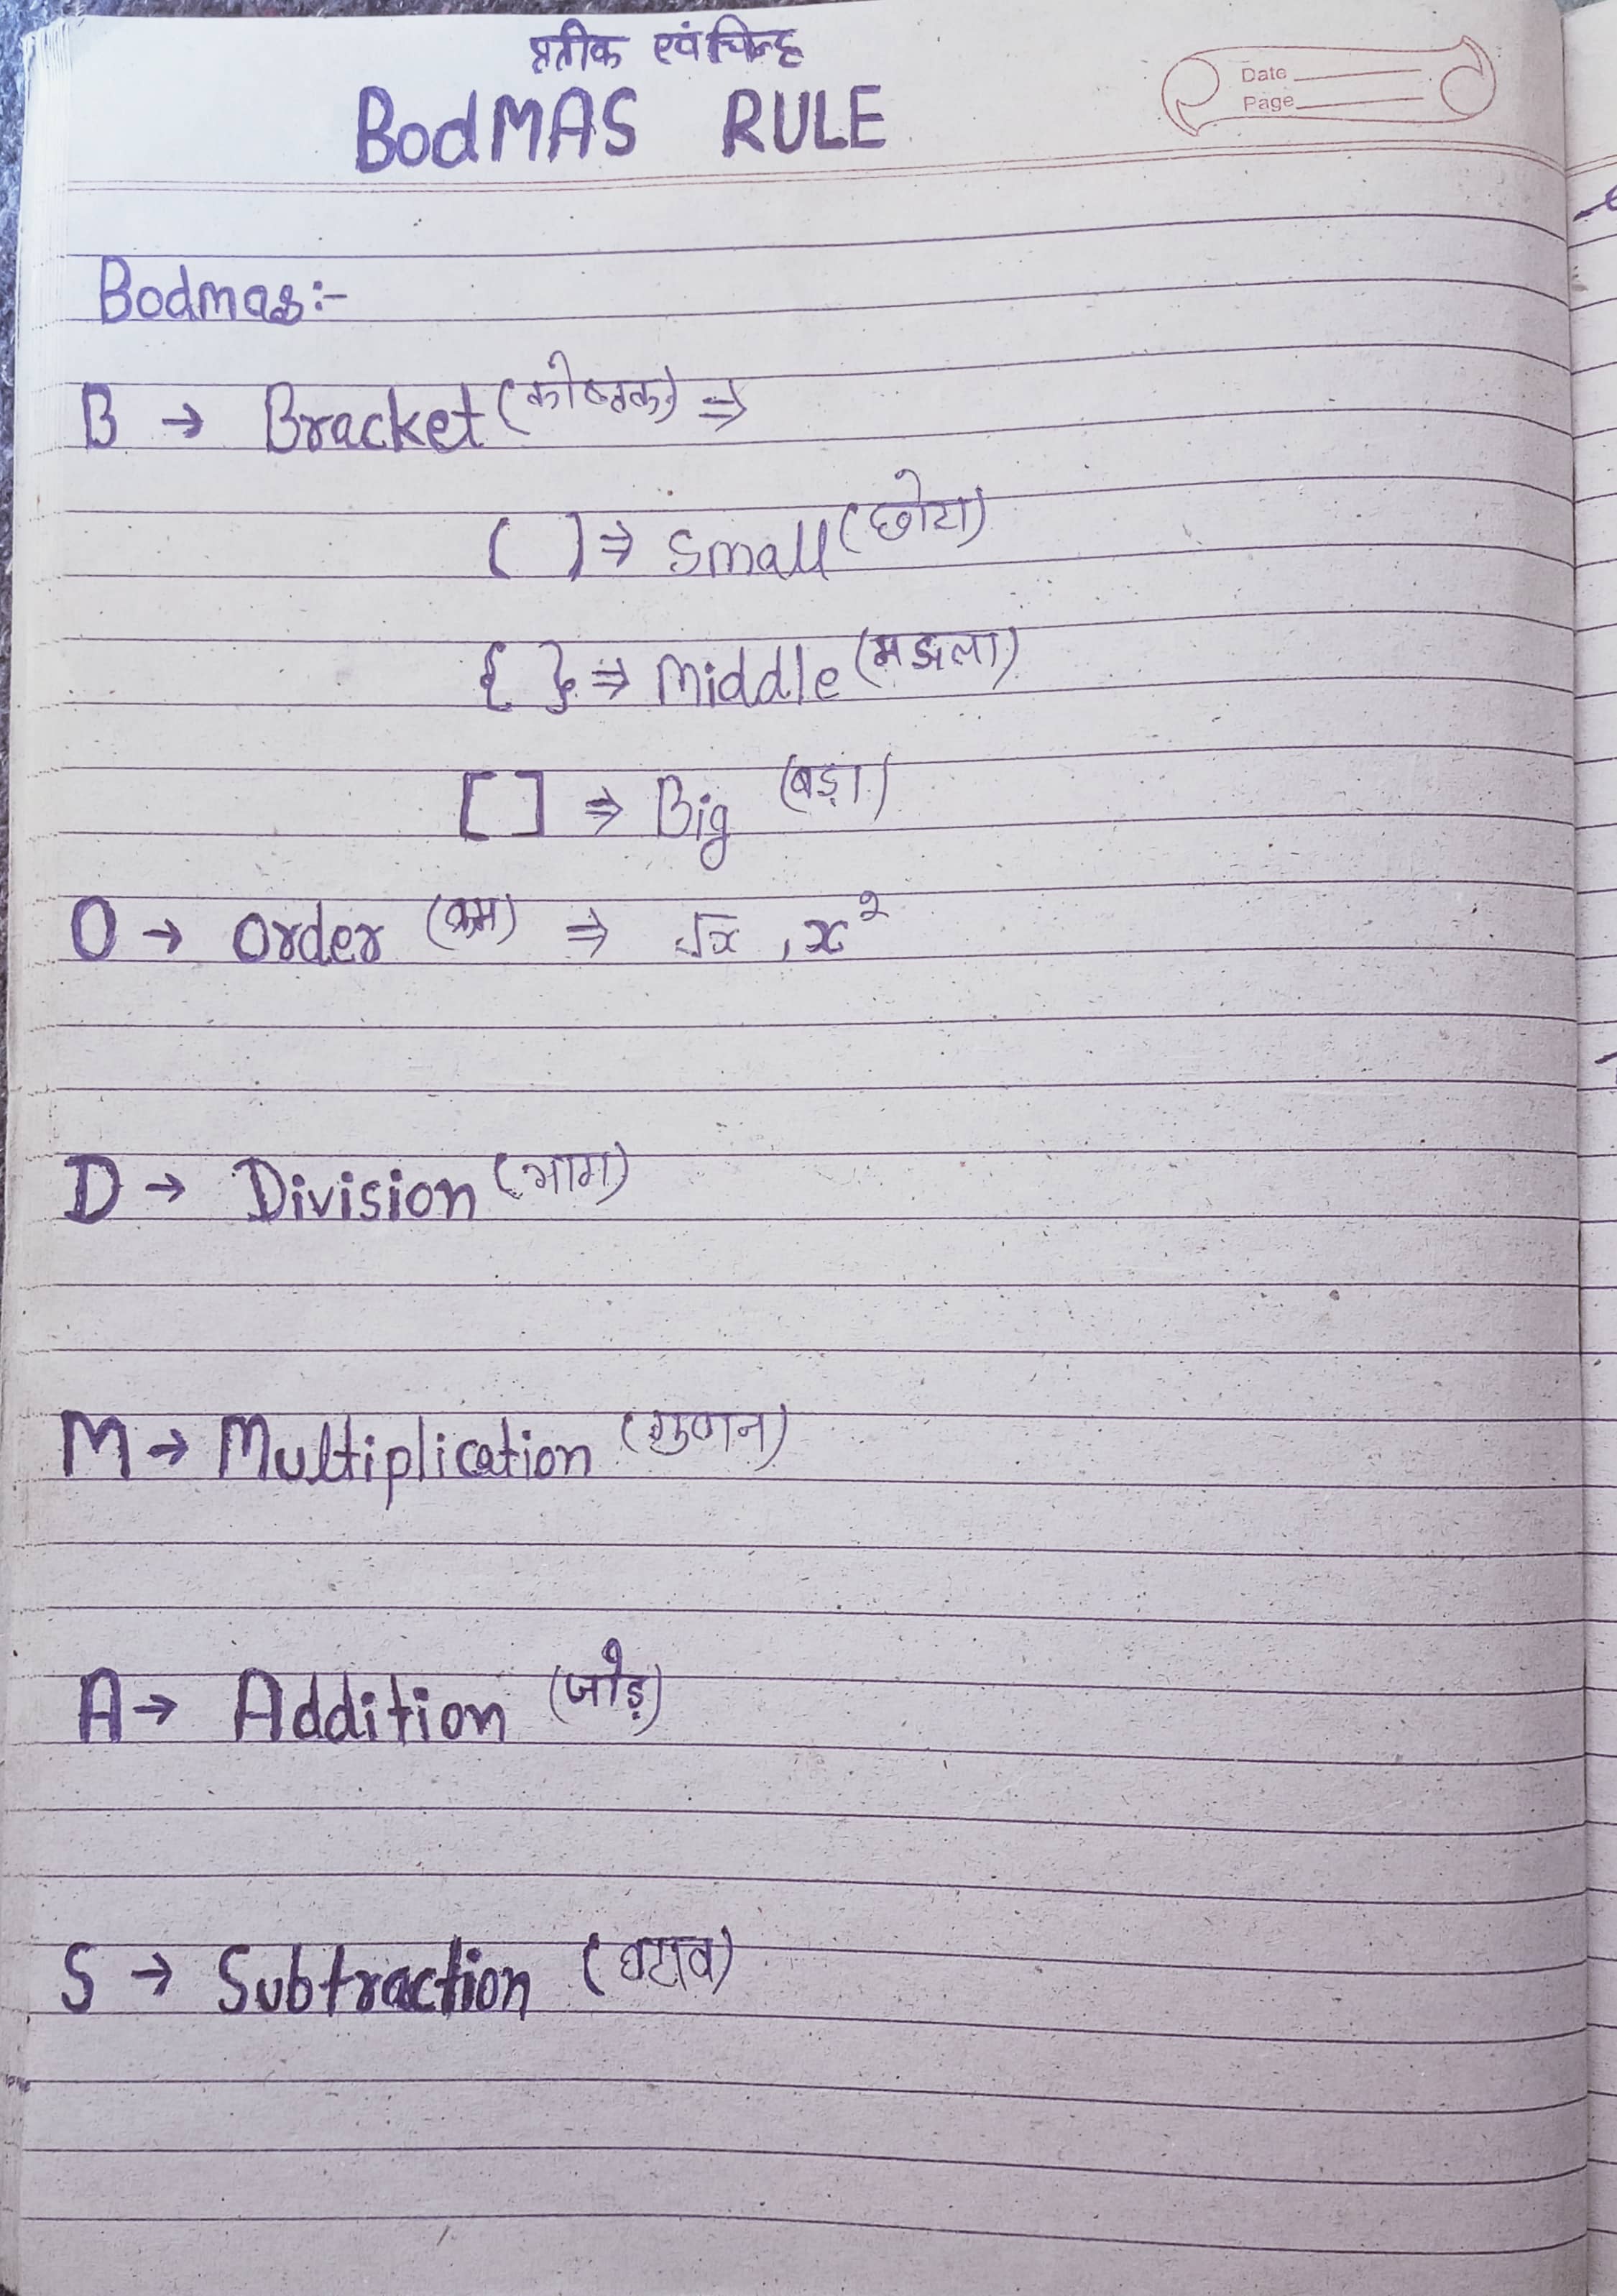 प्रतीक एवं चिन्ह
BodMAS RULE
Date
Page
Bodmas:-
B → Bracket (कोष्ठक) ⇒
( ) ⇒ Small (छोटा)
{ } ⇒ Middle (मझला)
[ ] ⇒ Big (बड़ा)
O → Order (क्रम) ⇒ √x , x²
D → Division (भाग)
M → Multiplication (गुणन)
A → Addition (जोड़)
S → Subtraction (घटाव)